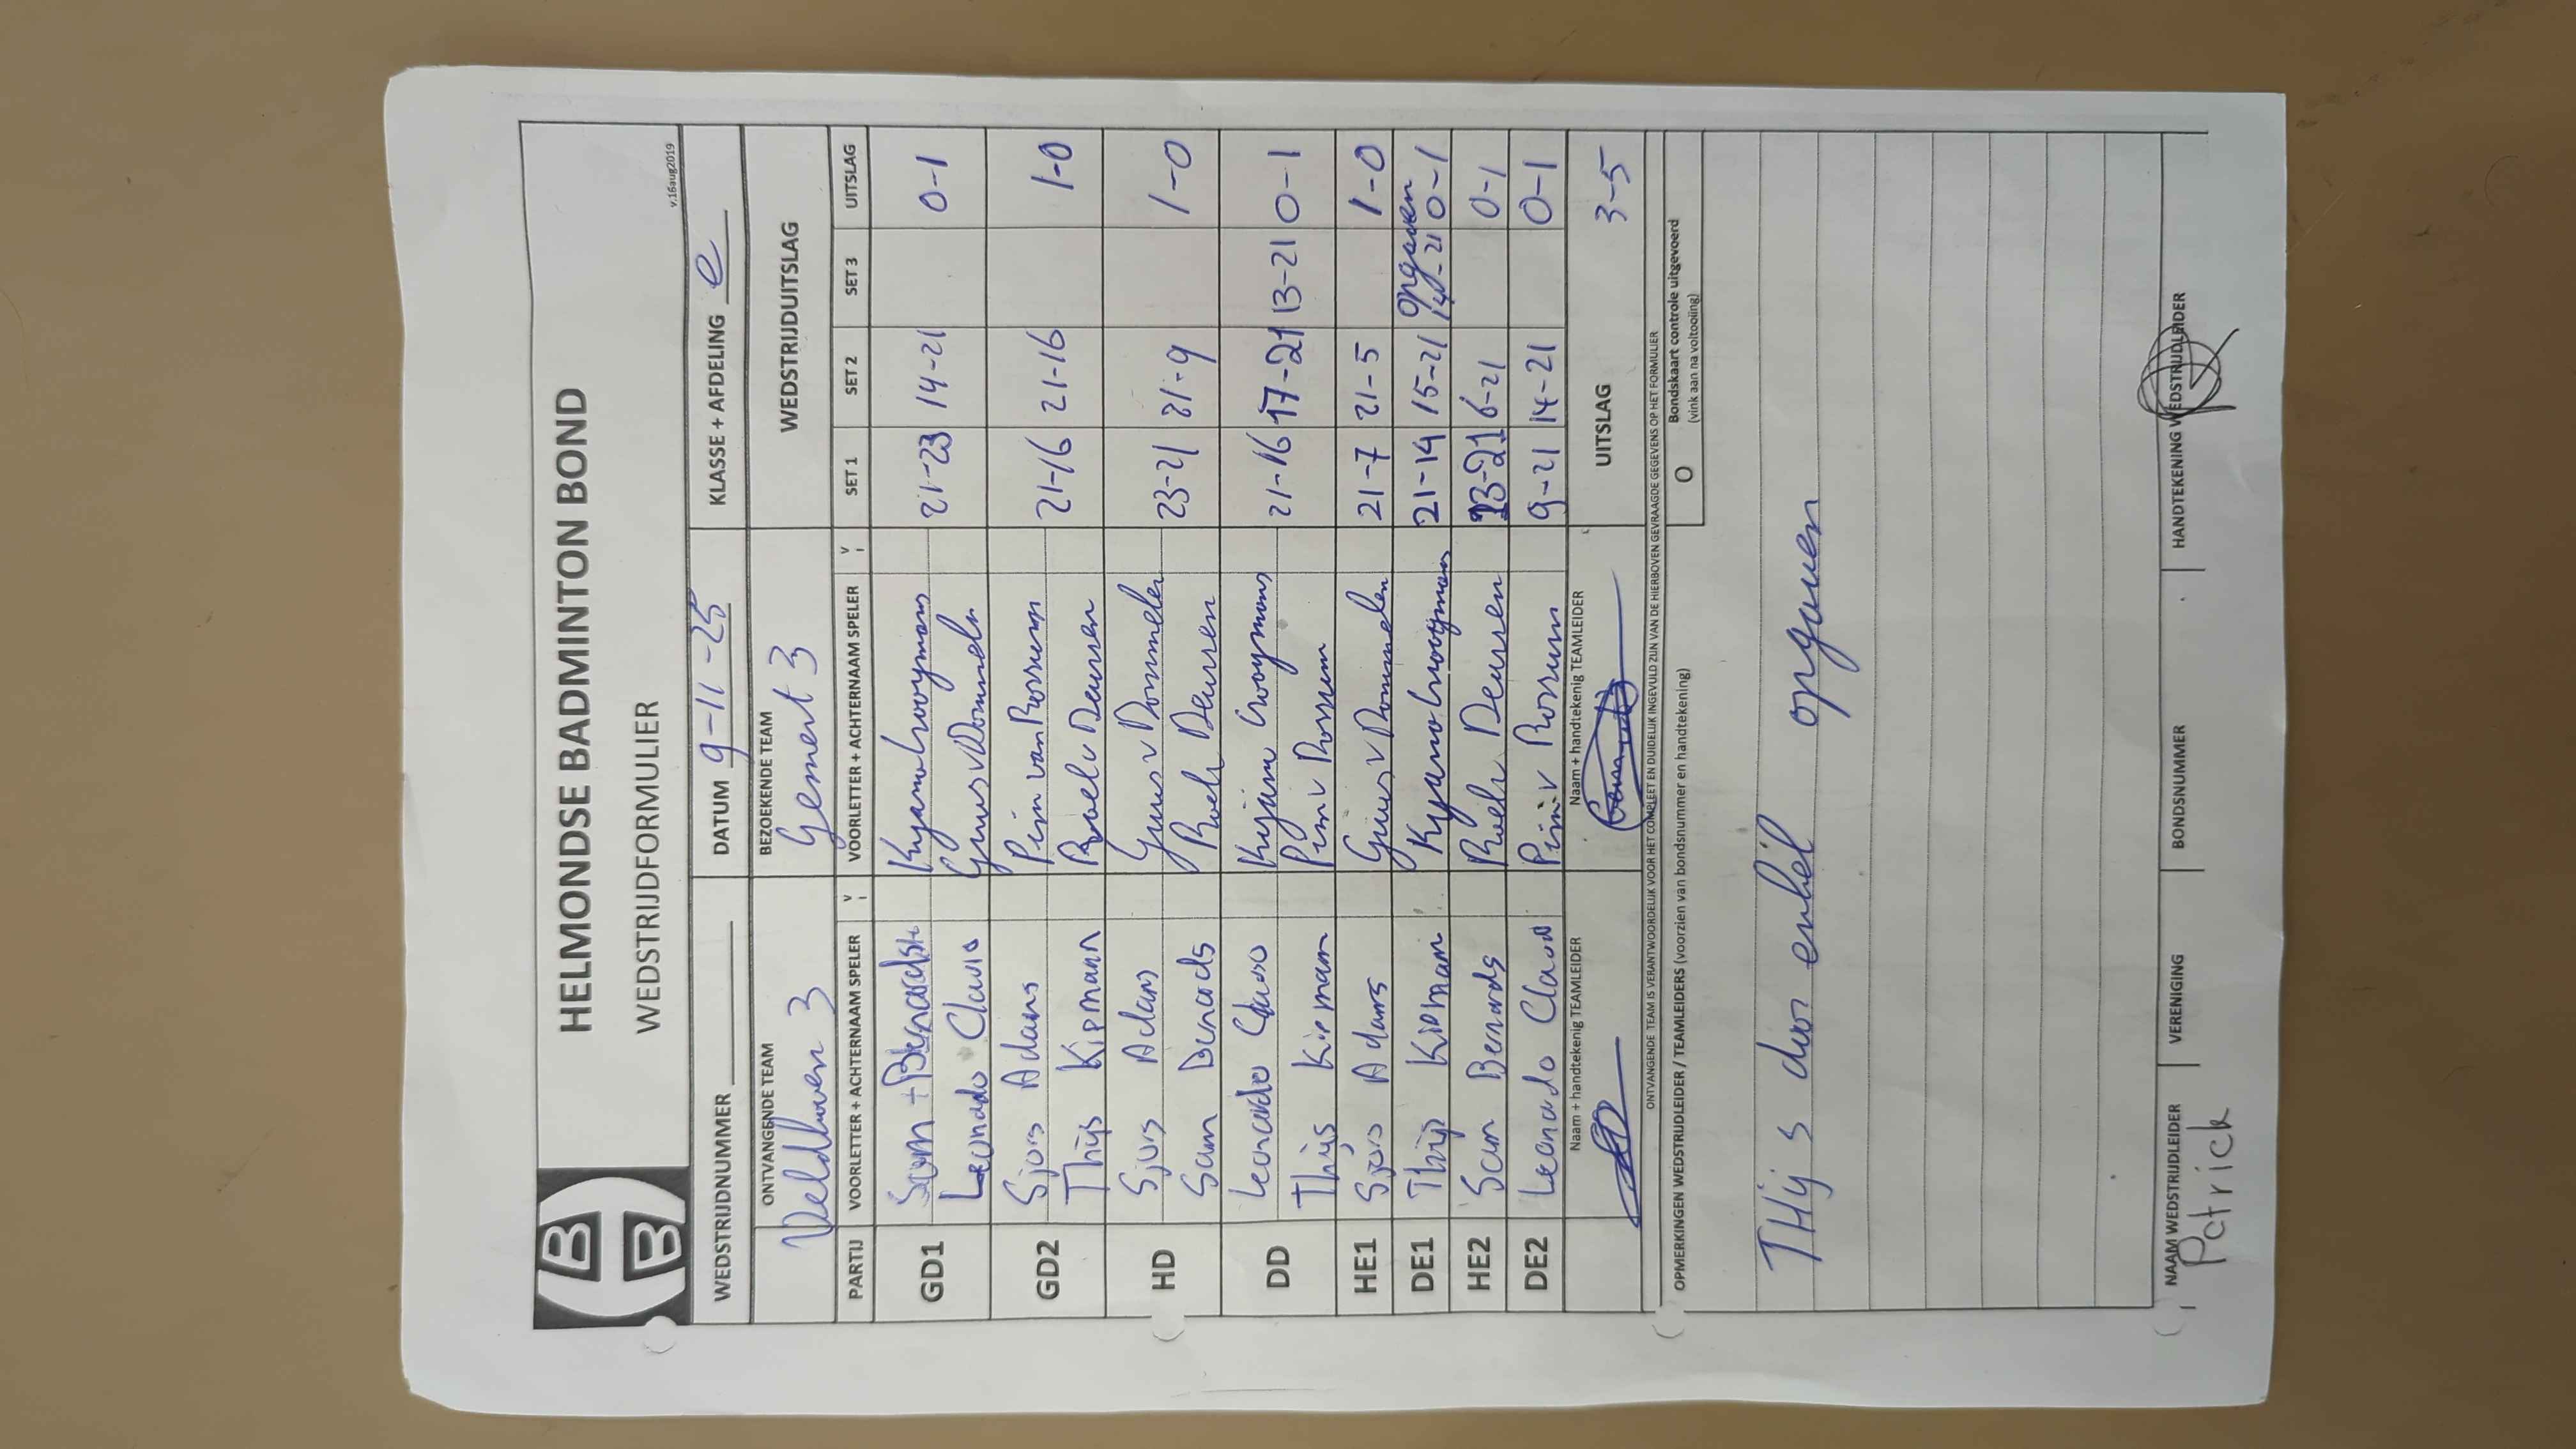 HELMONDSE BADMINTON BOND
WEDSTRIJDFORMULIER
v.16aug2019
WEDSTRIJDNUMMER DATUM 9-11-25 KLASSE + AFDELING e
ONTVANGENDE TEAM BEZOEKENDE TEAM WEDSTRIJDUITSLAG
Veldhoven 3 Gemert 3
PARTIJ VOORLETTER + ACHTERNAAM SPELER V VOORLETTER + ACHTERNAAM SPELER V SET 1 SET 2 SET 3 UITSLAG
GD1 Sam + 21-23 14-21 0-1
Leonado Guus v Dommeln
GD2 Sjors Adams Pim van Rossum 21-16 21-16 1-0
Thijs Kipmann Roel v Deursen
HD Sjors Adams Guus v Dommelen 23-21 21-9 1-0
Sam Benards Roel v Deursen
DD Leonardo 21-16 17-21 13-21 0-1
Thijs Kipmann Pim v Rossum
HE1 Sjors Adams Guus v Dommelen 21-7 21-5 1-0
opgaven
DE1 Thijs Kipmann 21-14 15-21 14-21 0-1
HE2 Sam Benards Roel v Deursen 13-21 6-21 0-1
DE2 Leonado Pim v Rossum 9-21 14-21 0-1
Naam + handtekenig TEAMLEIDER Naam + handtekenig TEAMLEIDER UITSLAG 3-5
ONTVANGENDE TEAM IS VERANTWOORDELIJK VOOR HET COMPLEET EN DUIDELIJK INGEVULD ZIJN VAN DE HIERBOVEN GEVRAAGDE GEGEVENS OP HET FORMULIER
OPMERKINGEN WEDSTRIJDLEIDER / TEAMLEIDERS (voorzien van bondsnummer en handtekening) O Bondskaart controle uitgevoerd
(vink aan na voltooiing)
THijs door enkel opgaven
NAAM WEDSTRIJDLEIDER VERENIGING BONDSNUMMER HANDTEKENING WEDSTRIJDLEIDER
Patrick